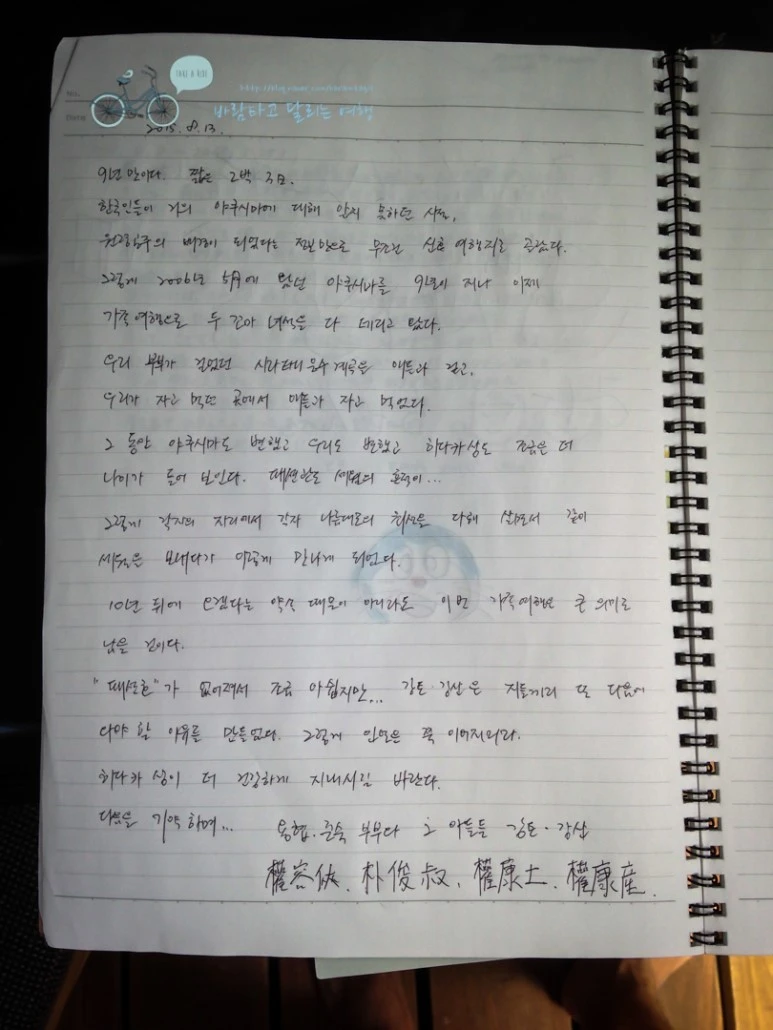 TAKE A RIDE
No.
Date
바람타고 달리는 여행
2015. 8. 13.
9년 만이다. 짧은 2박 3일.
한국인들이 거의 야쿠시마에 대해 알지 못하던 시절,
원령공주의 배경이 되었다는 것만으로 무조건 신혼 여행지로 골랐다.
그렇게 2006년 5월에 왔던 야쿠시마를 9년이 지나 이제
가족여행으로 두 꼬마 녀석을 다 데리고 왔다.
우리 부부가 걸었던 시라타니운수계곡을 애들과 걷고,
우리가 자고 먹던 곳에서 애들과 자고 먹었다.
그 동안 야쿠시마도 변했고 우리도 변했고 히다카상도 조금은 더
나이가 들어 보인다. 세월의 흔적이...
그렇게 각자의 자리에서 각자 나름대로의 최선을 다해 살면서 같이
세월은 보내다가 이렇게 만나게 되었다.
10년 뒤에 오겠다는 약속 때문이 아니라도 이번 가족여행은 큰 의미로
남을 것이다.
가 없어져서 조금 아쉽지만... 강토·강산은 지들끼리 또 다음에
와야 할 이유를 만들었다. 그렇게 인연은 쭉 이어지리라.
히다카 상이 더 건강하게 지내시길 바란다.
다음을 기약하며... 용협·준숙 부부와 그 아들들 강토·강산
權容俠、朴俊叔、權康土、權康産.